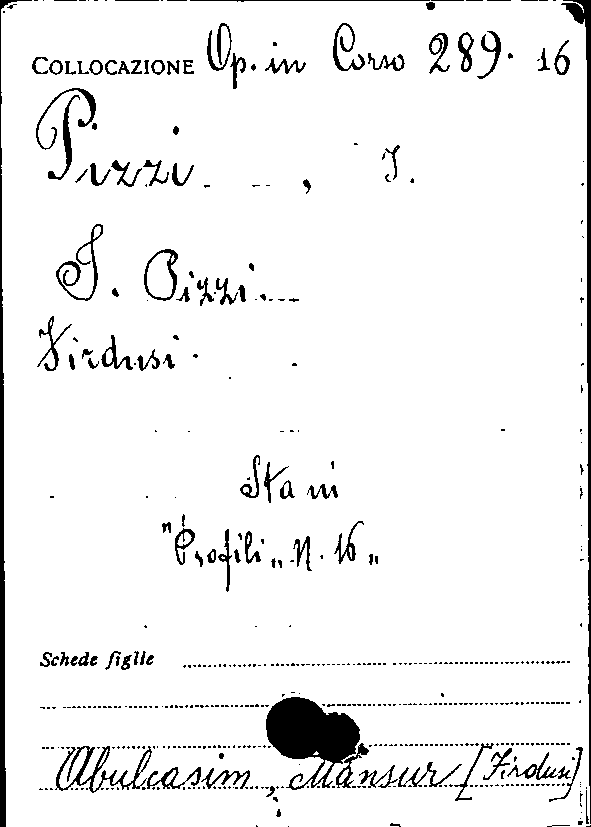 COLLOCAZIONE Op. in Corso 289. 16
Pizzi, I.
I. Pizzi.
Firdusi.
Sta in
"Profili„ N. 16„
Schede figlie
Abulcasim, Mansur [Firdusi]